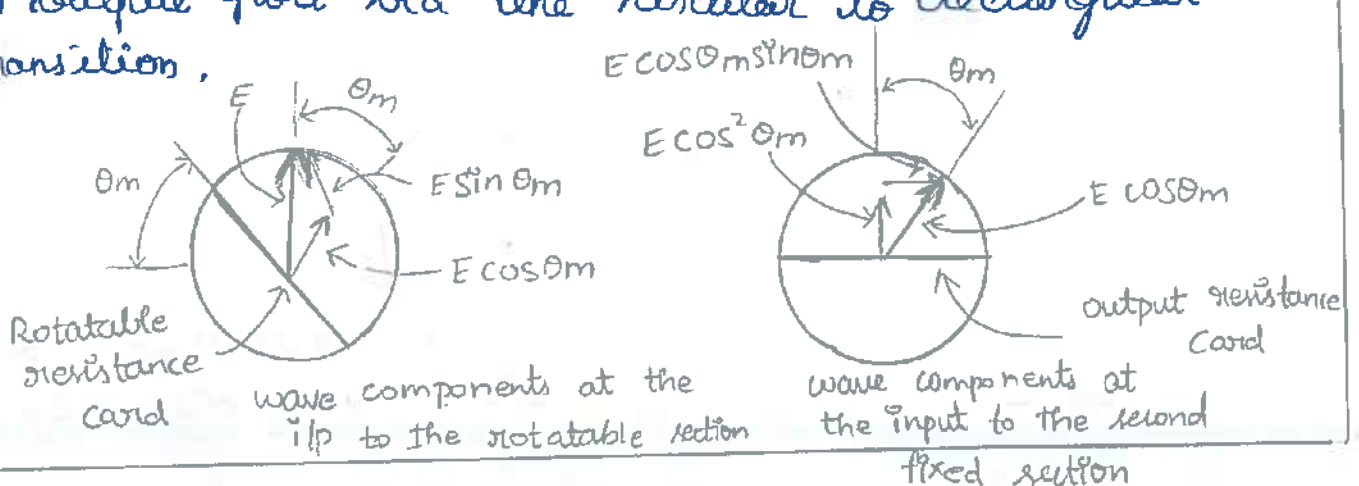 Propagate free via the circular to rectangular
ransition.
E
θm
θm
E sin θm
E cosθm
Rotatable
resistance
card
wave components at the
i/p to the rotatable section
E cosθm sinθm
θm
E cos² θm
E cosθm
output resistance
Card
wave components at
the input to the second
fixed section